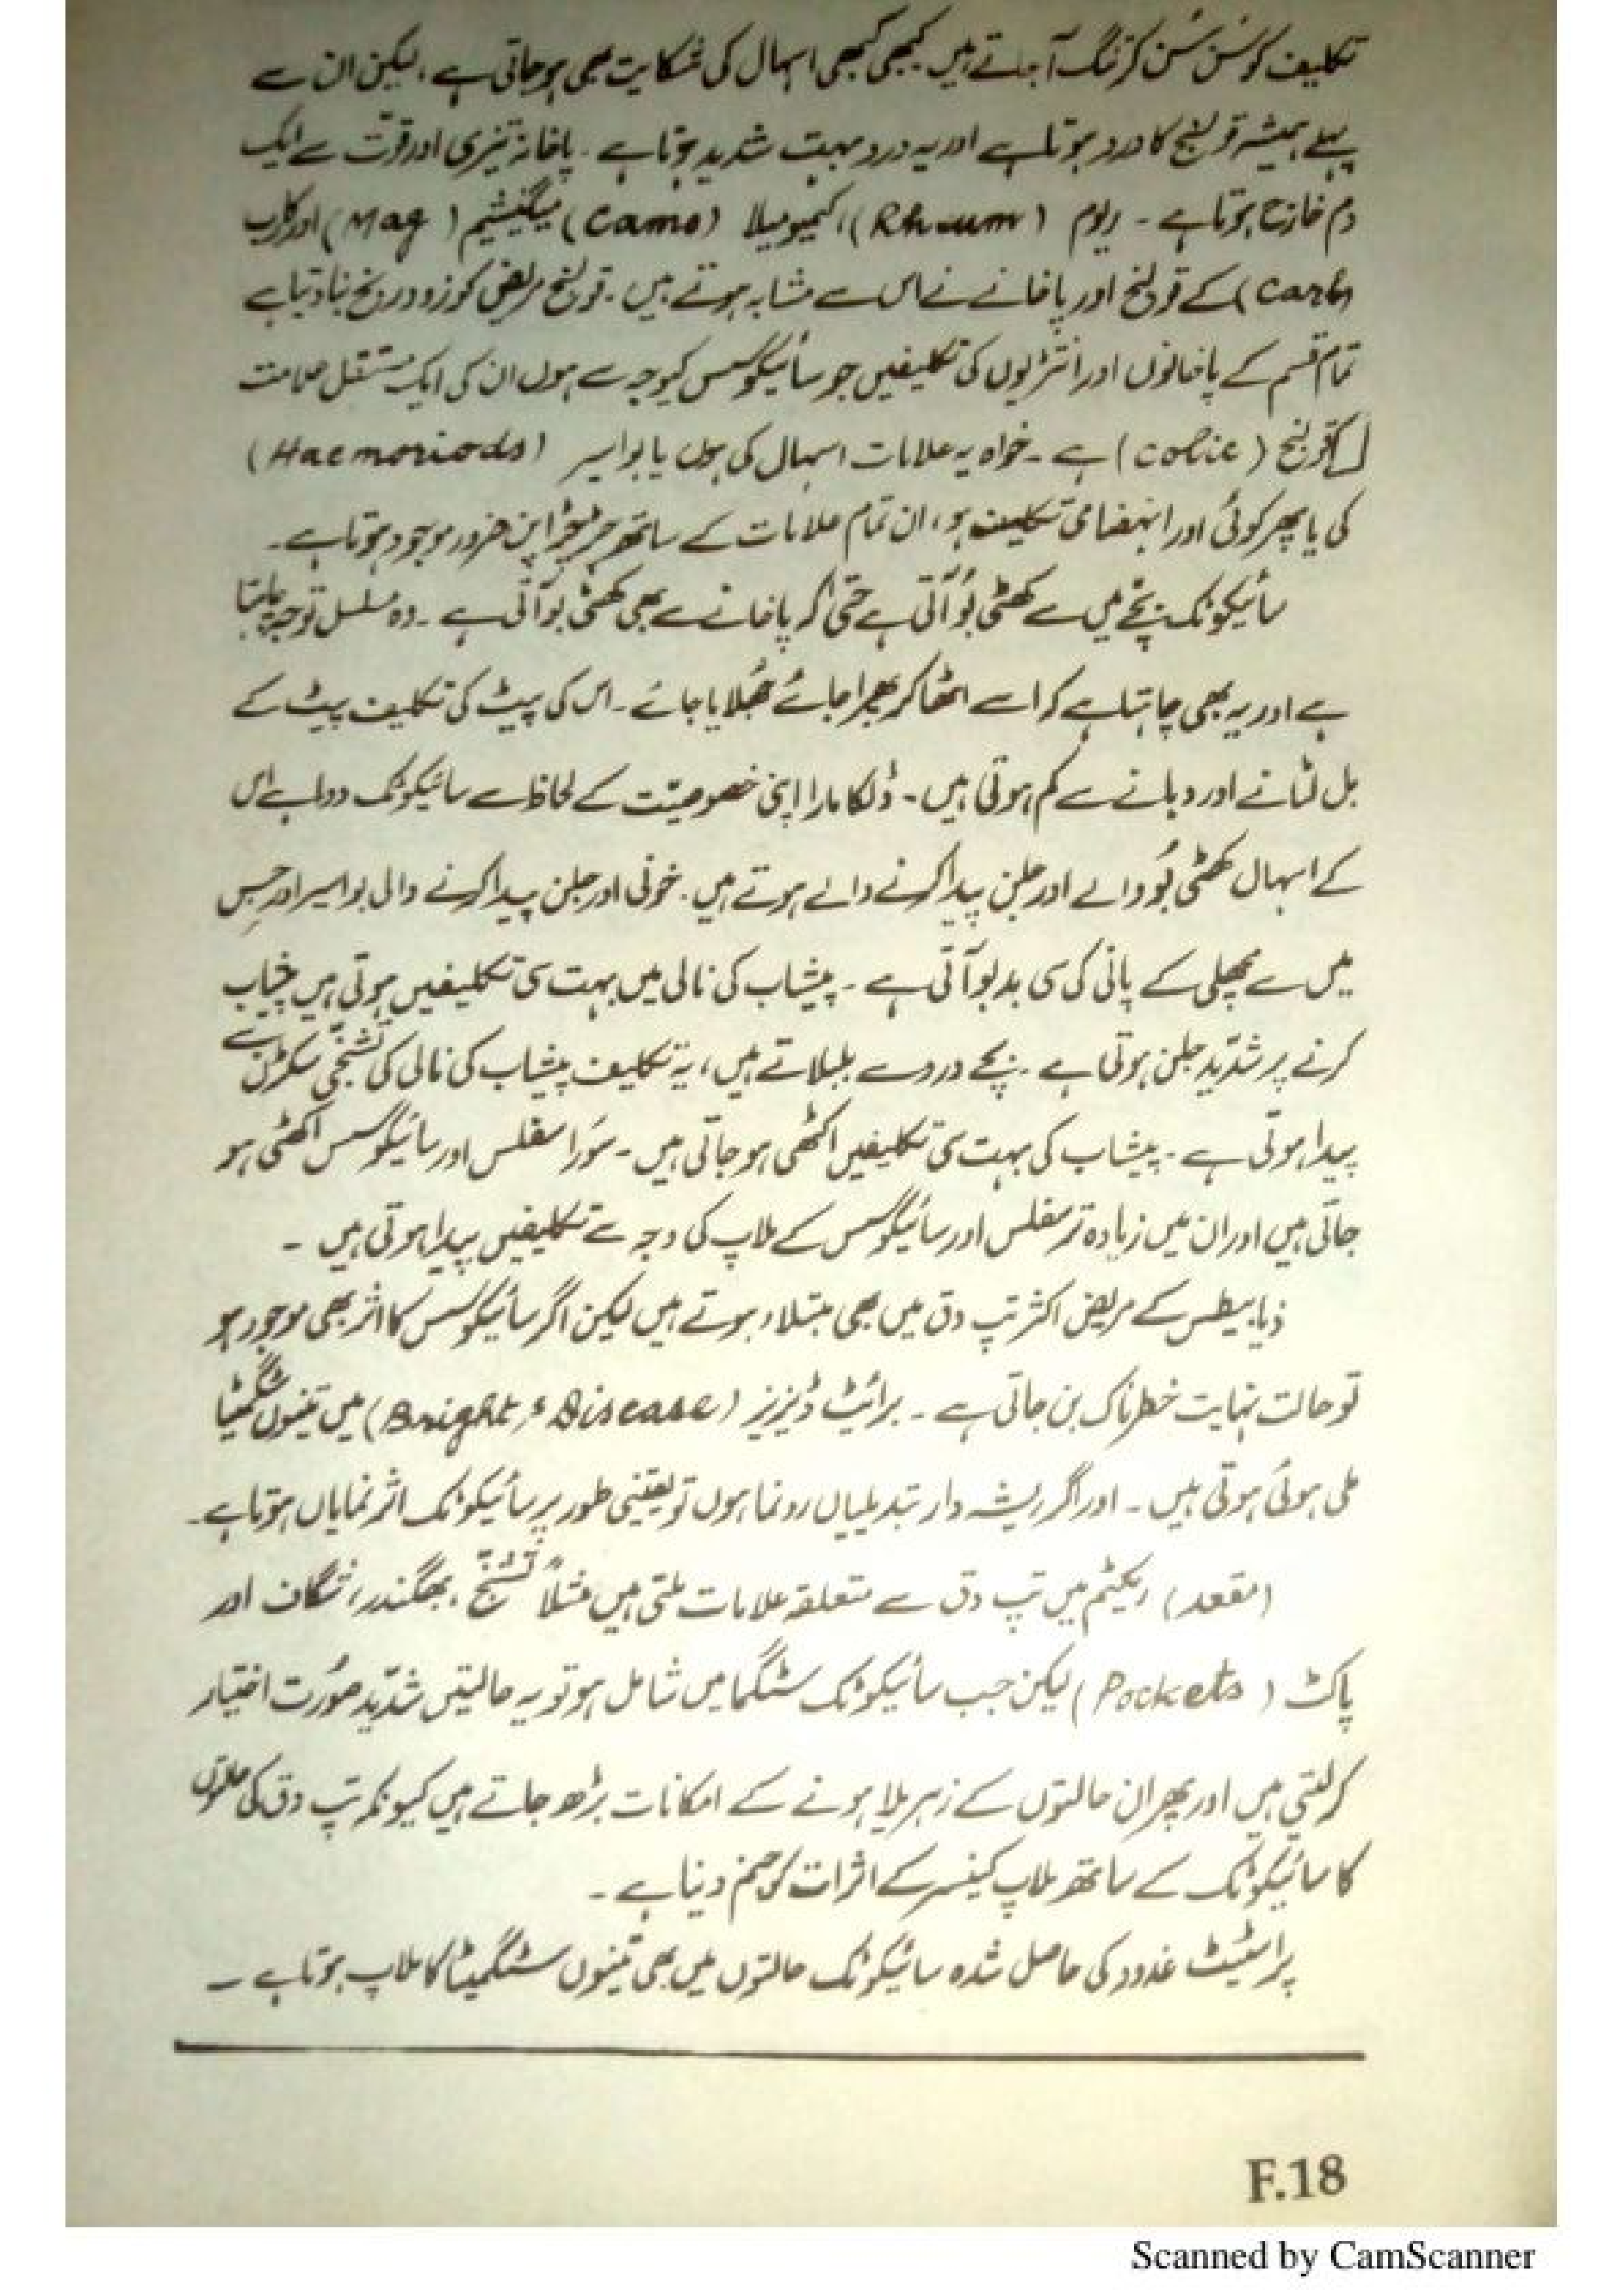 تکلیف کو سُن سُن کر تنگ آ جاتے ہیں کبھی کبھی اسہال کی شکایت بھی ہو جاتی ہے ۔ لیکن ان سے
پہلے ہمیشہ قولنج کا درد ہوتا ہے اور یہ درد بہت شدید ہوتا ہے ۔ پاخانہ تیزی اور قوت سے ایک
دم خارج ہوتا ہے ۔ ریوم (Rheum)، کیمومیلا (Camo) میگنیشیم (Mag) اور کارب
(Carb) کے قولنج اور پاخانے اس سے مشابہ ہوتے ہیں ۔ قولنج مریض کو زود رنج بنا دیتا ہے
تمام قسم کے پاخانوں اور انتڑیوں کی تکلیفیں جو سائیکوسس کیوجہ سے ہوں ان کی ایک مستقل علامت
قولنج (Colic) ہے ۔ خواہ یہ علامات اسہال کی ہوں یا بواسیر (Haemoriods)
کی یا پھر کوئی اور انہضامی تکلیف ہو، ان تمام علامات کے ساتھ چڑچڑا پن ضرور موجود ہوتا ہے ۔
سائیکوٹک بچے میں سے کھٹی بُو آتی ہے حتیٰ کہ پاخانے سے بھی کھٹی بُو آتی ہے ۔ وہ مسلسل توجہ چاہتا
ہے اور یہ بھی چاہتا ہے کہ اسے اٹھا کر پھرا جائے جُھلایا جائے ۔ اس کی پیٹ کی تکلیف پیٹ کے
بل لٹانے اور دبانے سے کم ہوتی ہیں ۔ ڈلکامارا اپنی خصوصیّت کے لحاظ سے سائیکوٹک دوا ہے اس
کے اسہال کھٹی بُو والے اور جلن پیدا کرنے والے ہوتے ہیں ۔ خونی اور جلن پیدا کرنے والی بواسیر اور جس
میں سے مچھلی کے پانی کی سی بدبو آتی ہے ۔ پیشاب کی نالی میں بہت سی تکلیفیں ہوتی ہیں پیشاب
کرنے پر شدّید جلن ہوتی ہے ۔ بچے درد سے بلبلاتے ہیں، یہ تکلیف پیشاب کی نالی کی تشنجّی سکڑن سے
پیدا ہوتی ہے ۔ پیشاب کی بہت سی تکلیفیں اکٹھی ہو جاتی ہیں ۔ سَورا سفلس اور سائیکوسس اکٹھی ہو
جاتی ہیں اور ان میں زیادہ تر سفلس اور سائیکوسس کے ملاپ کی وجہ سے تکلیفیں پیدا ہوتی ہیں ۔
ذیابیطس کے مریض اکثر تپ دق میں بھی مبتلاء ہوتے ہیں لیکن اگر سائیکوسس کا اثر بھی موجود ہو
تو حالت نہایت خطرناک بن جاتی ہے ۔ برائٹ ڈیزیز (Bright's Disease) میں تینوں سٹگمیٹا
ملی ہوئی ہوتی ہیں ۔ اور اگر ریشہ دار تبدیلیاں رونما ہوں تو یقینی طور پر سائیکوٹک اثر نمایاں ہوتا ہے ۔
(مقعد) ریکٹم میں تپ دق سے متعلقہ علامات ملتی ہیں مثلاً تشنّج ، بھگندر، شگاف اور
پاکٹ (Pockets) لیکن جب سائیکوٹک سٹگما میں شامل ہو تو یہ حالتیں شدّید صُورت اختیار
کر لیتی ہیں اور پھر ان حالتوں کے زہریلا ہونے کے امکانات بڑھ جاتے ہیں کیونکہ تپ دق کی حالتوں
کا سائیکوٹک کے ساتھ ملاپ کینسر کے اثرات کو جنم دیتا ہے ۔
پراسٹیٹ غدود کی حاصل شدہ سائیکوٹک حالتوں میں بھی تینوں سٹگمیٹا کا ملاپ ہوتا ہے ۔
F.18
Scanned by CamScanner